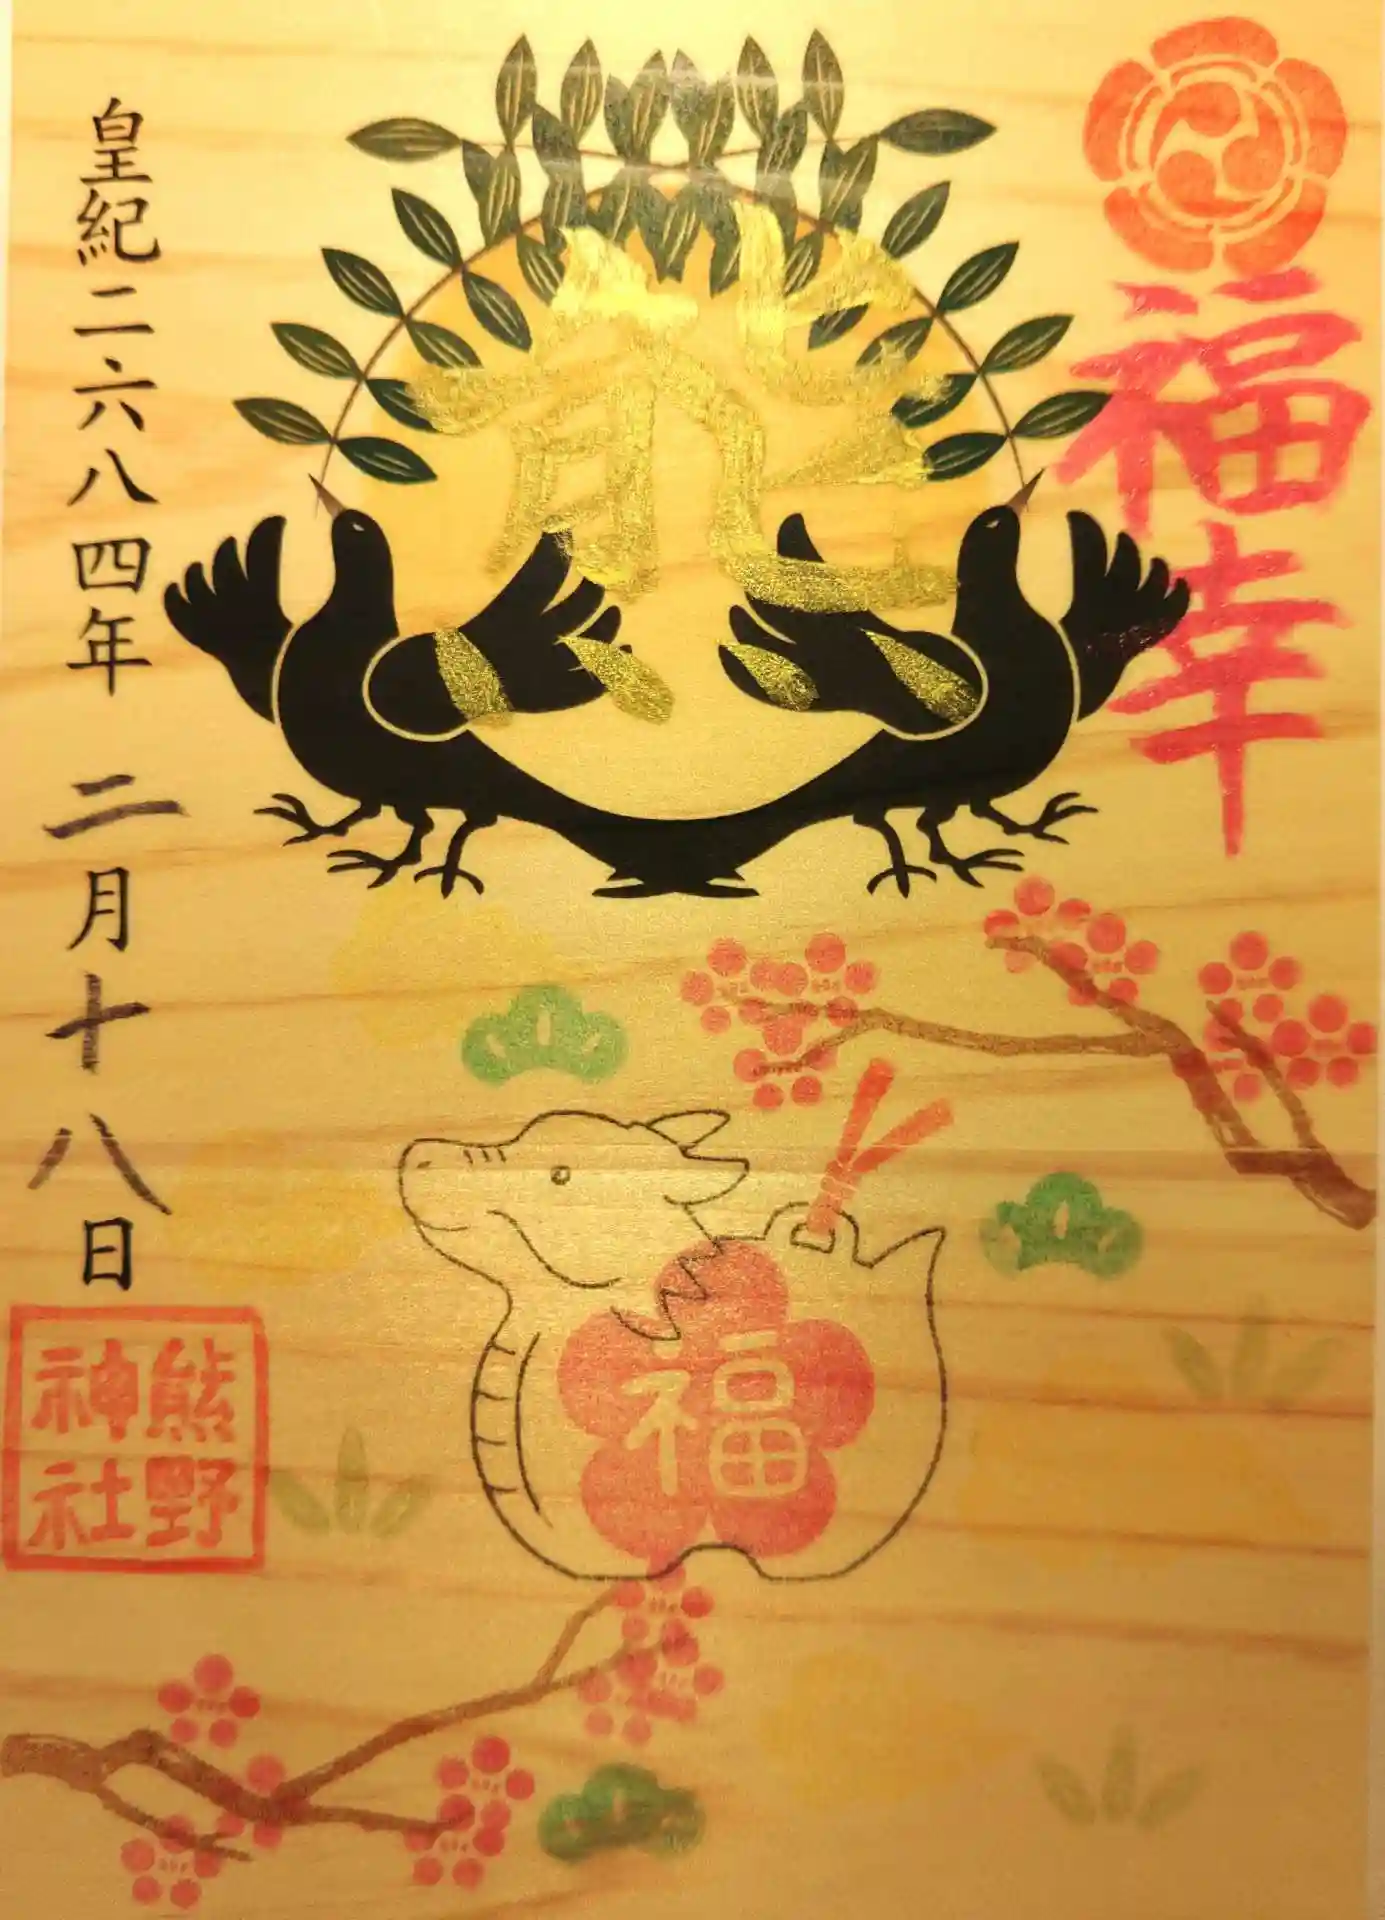 福幸
熊
福
皇紀二六八四年 二月十八日
熊野
神社